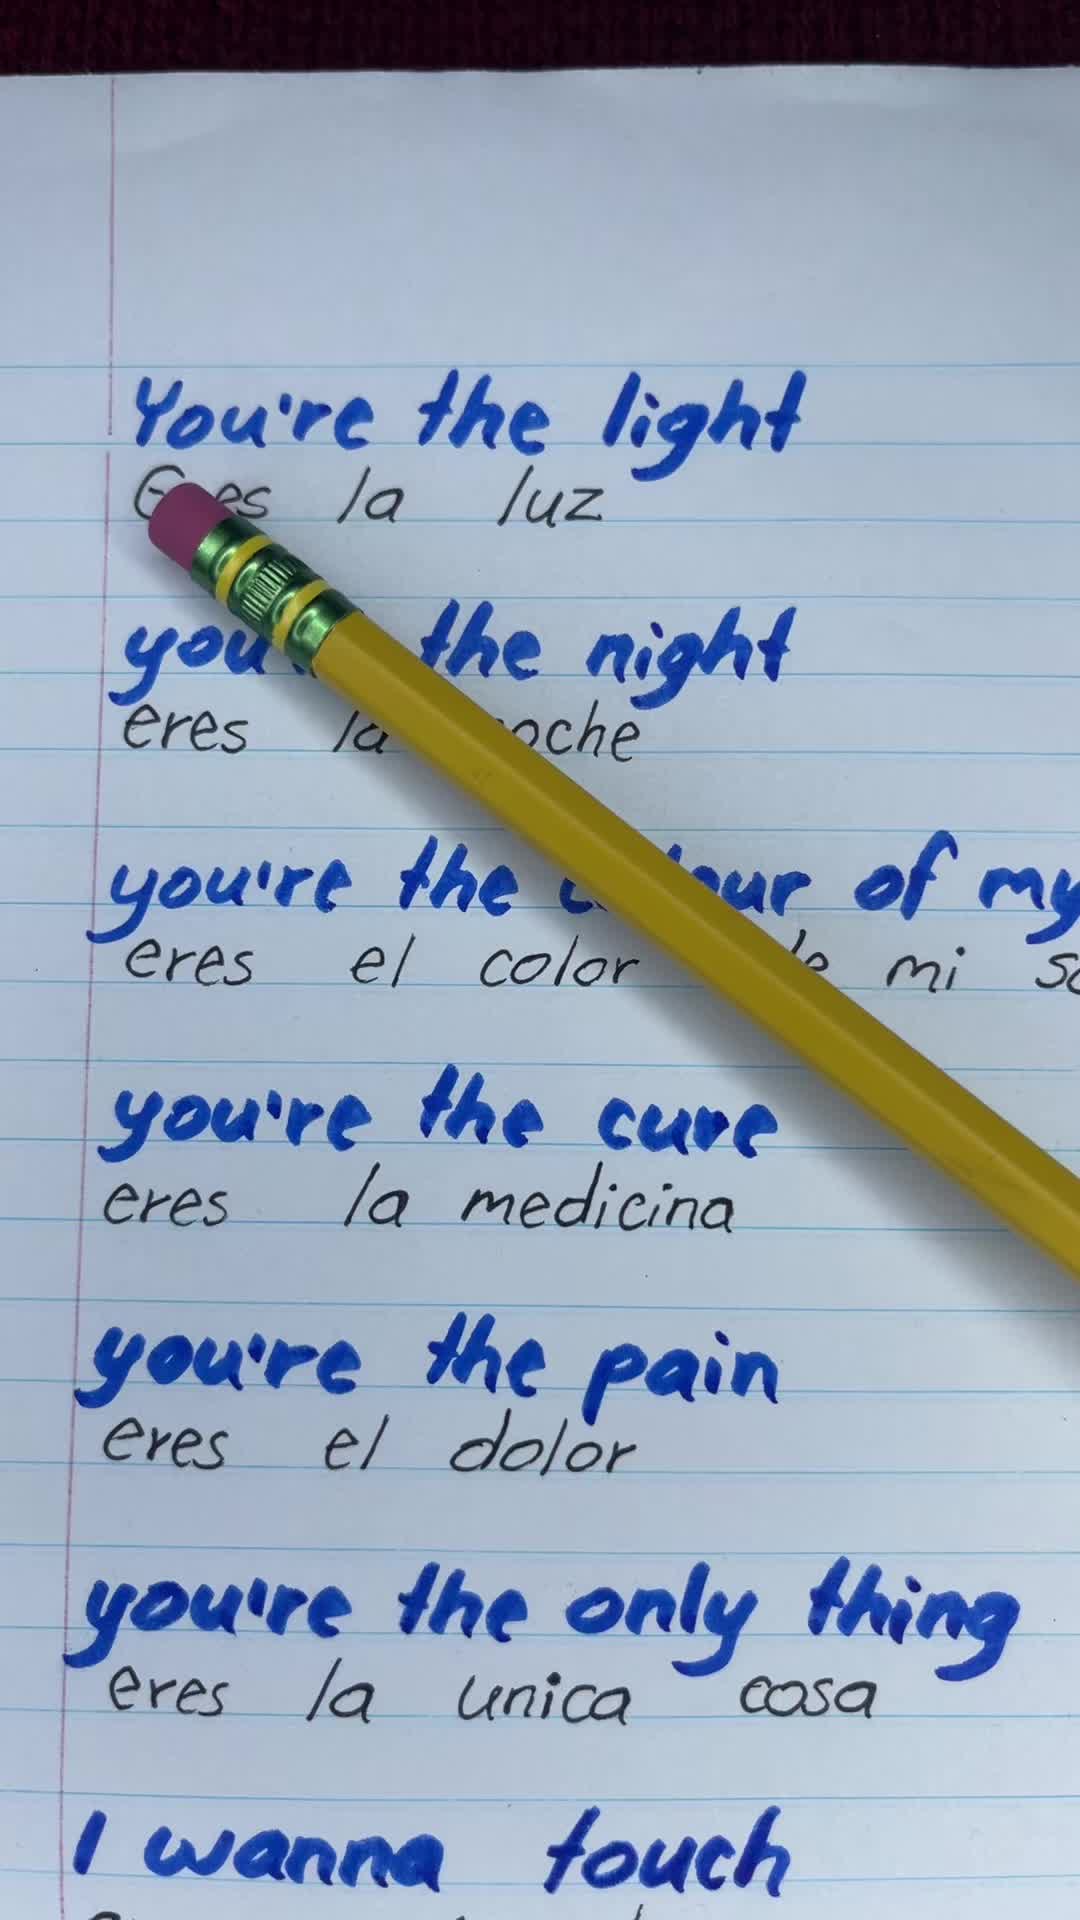 You're the light
Eres la luz
the night
eres la noche
you're the colour of my
eres el color de mi
you're the cure
eres la medicina
you're the pain
eres el dolor
you're the only thing
eres la unica cosa
I wanna touch